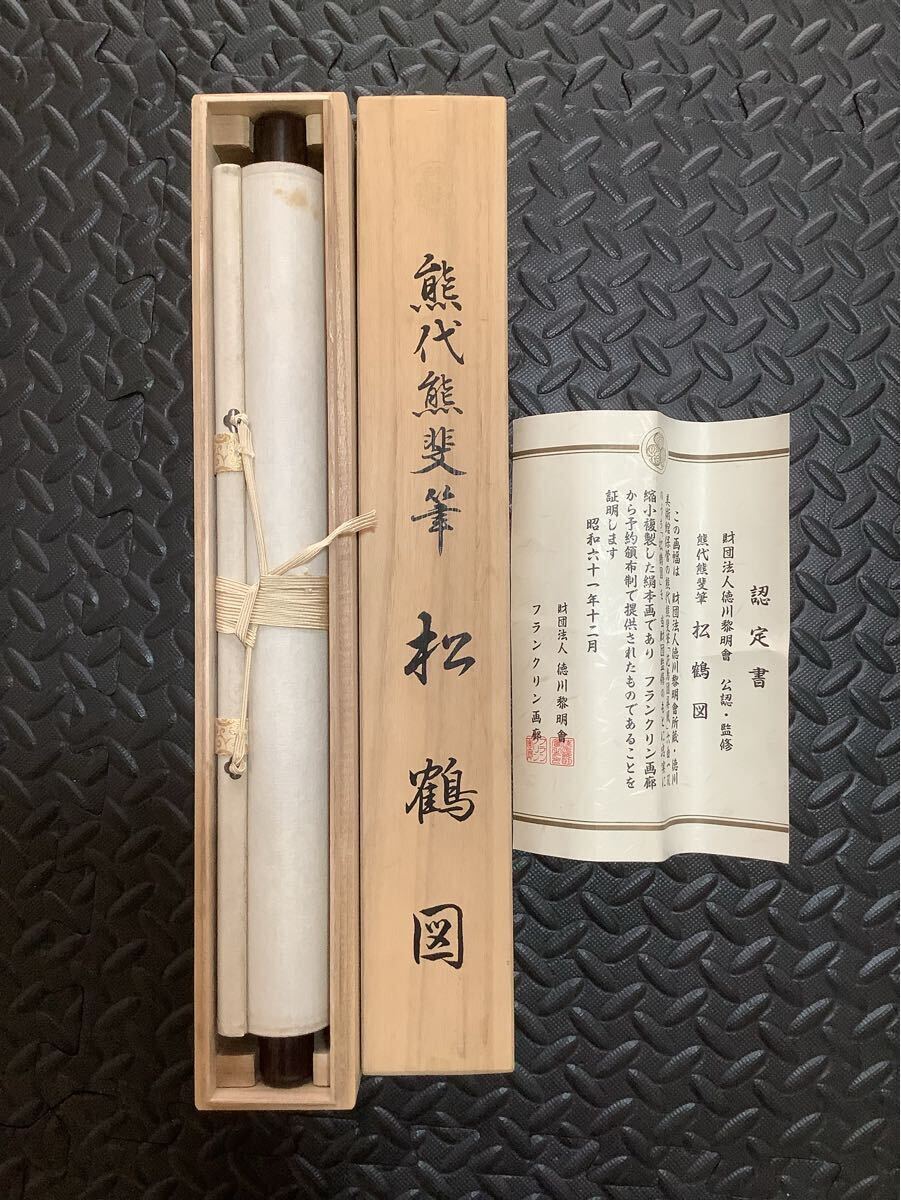 熊代熊斐筆 松鶴図
認定書
財団法人徳川黎明會 公認・監修
熊代熊斐筆 松鶴図
この画幅は 財団法人徳川黎明會所蔵・徳川
美術館保管の熊代熊斐筆
縮小複製した絹本画であり フランクリン画廊
から予約頒布制で提供されたものであることを
証明します
昭和六十一年十二月
財団法人 徳川黎明會
フランクリン画廊